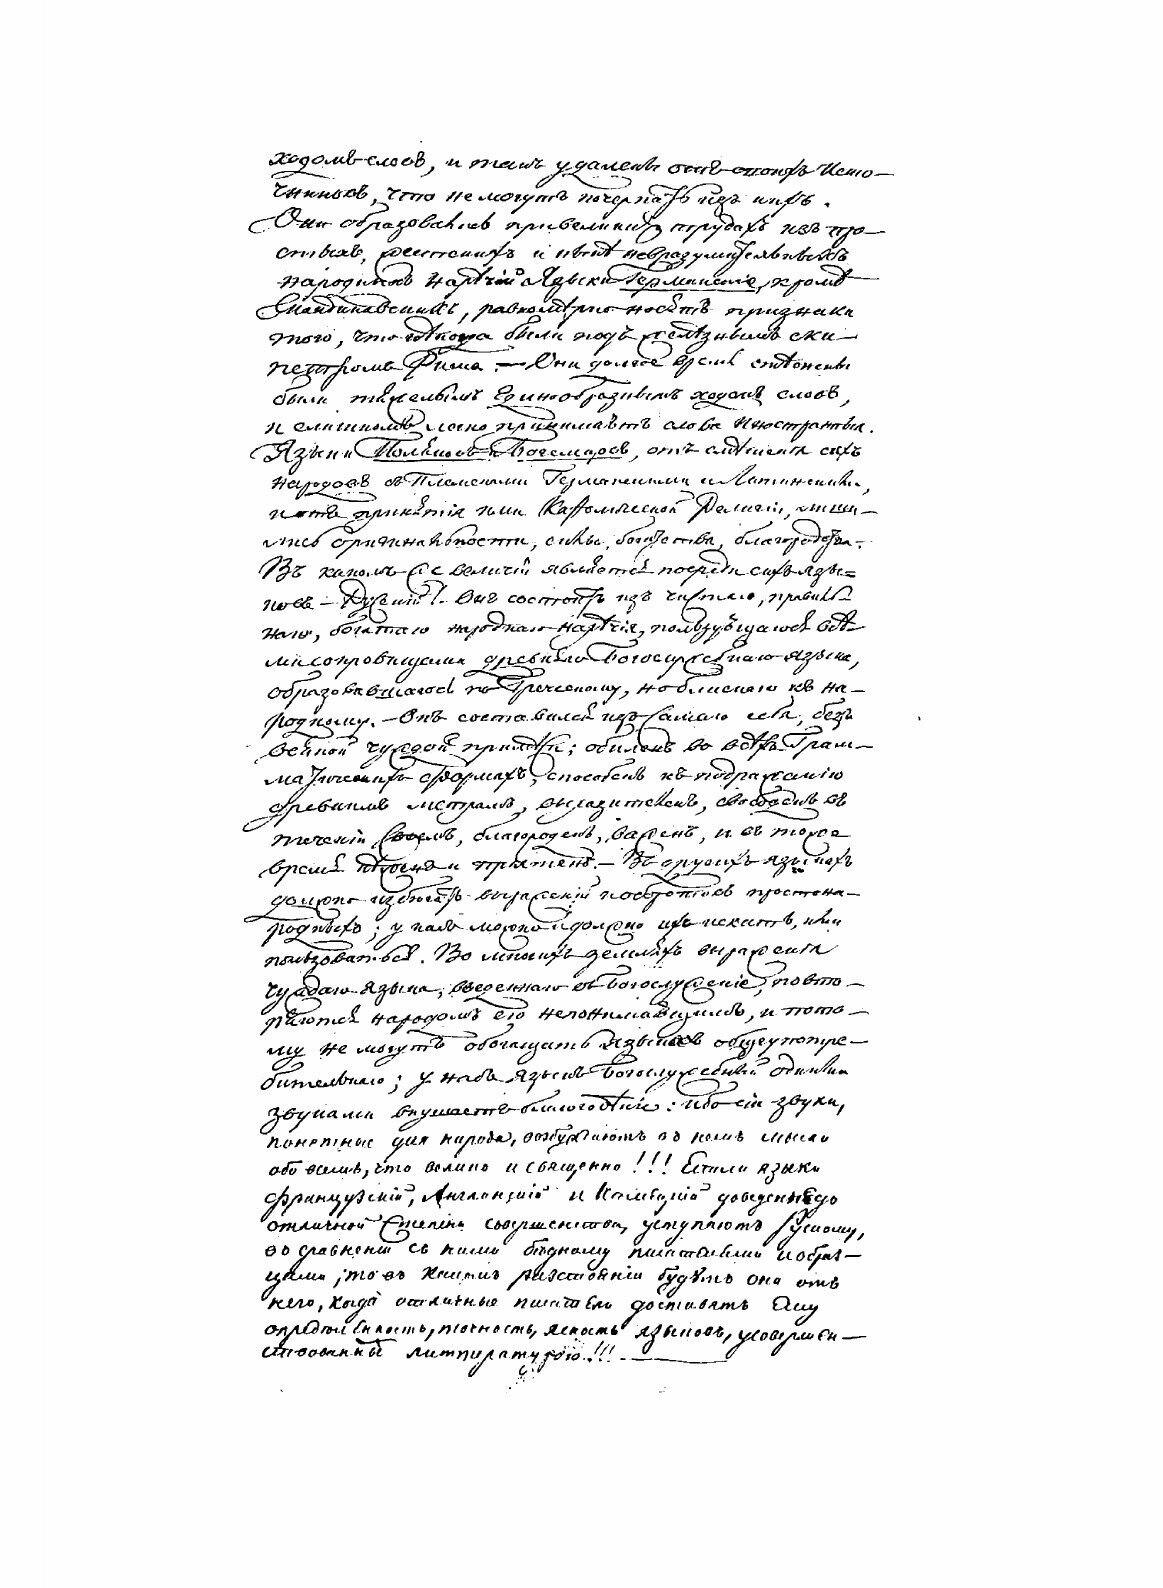 ходомъ словъ, и такъ удалены отъ оныхъ Исто—
чниковъ, что не могутъ почерпать изъ нихъ.
Они образовались при великихъ трудахъ изъ про—
стыхъ, и невразумительныхъ
народныхъ нарѣчій. Языки Германскіе, кромѣ
Скандинавскихъ, равномѣрно носятъ признаки
того, что нѣкогда были подъ желѣзнымъ ски—
петромъ Рима. — Они долгое время стѣснены
были тяжелымъ единообразнымъ ходомъ словъ,
и слишкомъ легко принимаютъ слова Иностранныя.
Языки Поляковъ и Богемцовъ, отъ смѣшенія сихъ
народовъ съ Племенами Германскими и Латинскими,
и отъ принятія ими Каѳолической Религіи, лиши—
лись оригинальности, силы, богатства, благородства.
Въ какомъ же величіи является посреди сихъ язы=
ковъ — Рускій!. Онъ состоитъ изъ чистаго, правиль—
наго, богатаго народнаго нарѣчія, пользующагося всѣ—
ми сокровищами древняго Богослужебнаго языка,
образовавшагося по Греческому, но близкаго къ на—
родному. — Онъ составился изъ самаго себя, безъ
всякой чуждой примѣси; обиленъ во всѣхъ Грам—
матическихъ формахъ, способенъ къ подражанію
древнимъ метрамъ, выразителенъ, свободенъ въ
теченіи своемъ, благороденъ, важенъ, и въ тоже
время нѣженъ и пріятенъ. — Въ другихъ языкахъ
должно избѣгать выраженій и оборотовъ простона—
родныхъ; у насъ можно и должно ихъ искать, ими
пользоваться. Во многихъ земляхъ выраженія
чуждаго языка, введеннаго въ Богослуженіе, повто—
ряются народомъ его непонимающимъ, и пото—
му не могутъ обогащать языковъ общеупотре—
бительнаго; у насъ языкъ Богослужебный одними
звуками внушаетъ благоговѣніе: ибо сіи звуки,
понятные для народа, возбуждаютъ въ немъ мысли
обо всемъ, что велико и священно!!! Естьли языки
французскій, Англинскій и Нѣмецкій доведенные до
отличной степени совершенства, уступаютъ Рускому,
въ сравненіи съ ними бѣдному писателями и образ—
цами; то въ какомъ разстояніи будутъ они отъ
него, когда отличные писатели доставятъ ему
опредѣленность, точность, ясность языковъ, усовершен—
ствованныхъ литтературою!!!